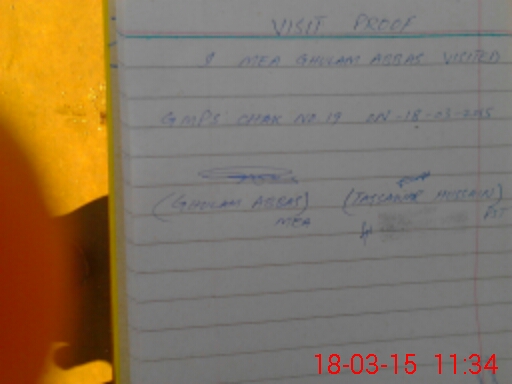 VISIT PROOF
I MEA GHULAM ABBAS VISITED
GMPS CHAK NO. 19 ON - 18-03-2015
(GHULAM ABBAS) (TASSAWAR HUSSAIN)
MEA PST
18-03-15 11:34